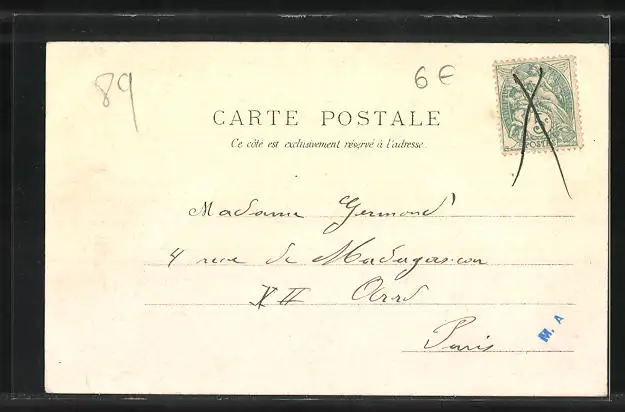 89
6€
5c
POSTES
CARTE POSTALE
Ce côté est exclusivement réservé à l'adresse.
Madame Germond
4 rue de Madagascar
XII Arrd
Paris
M. A